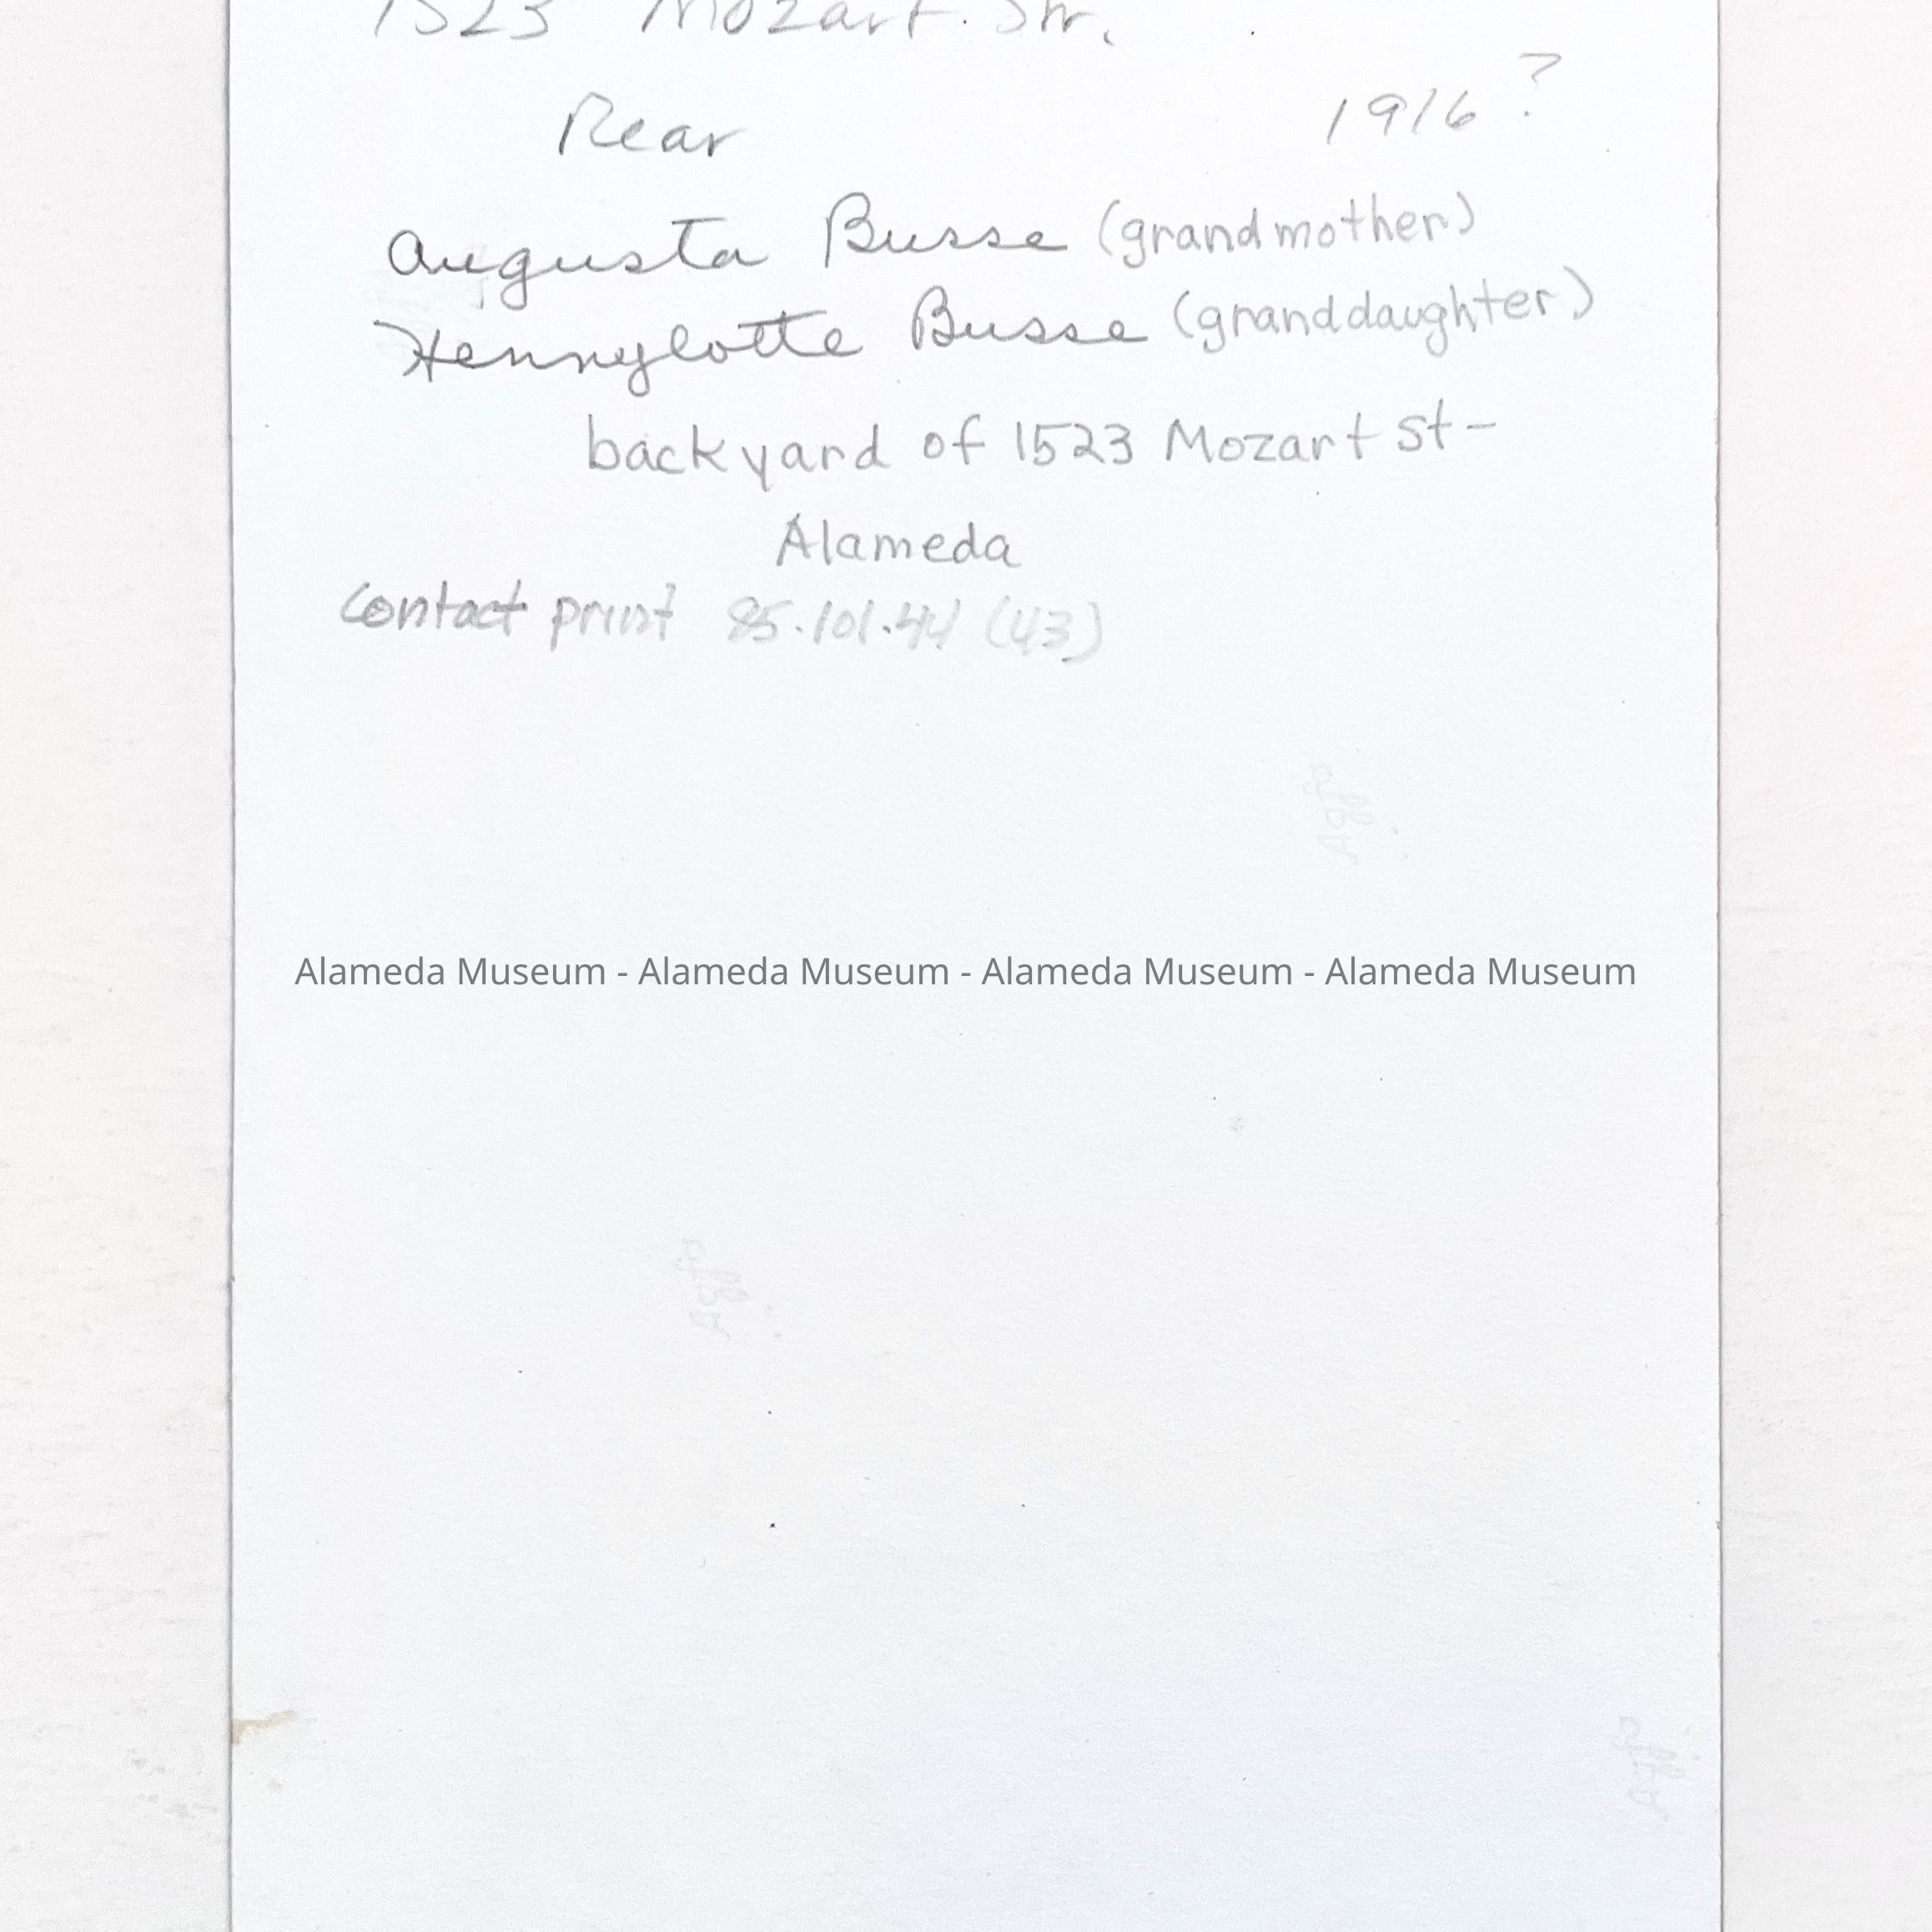 1523 Mozart. Str.
Rear
1916?
Augusta Busse (grandmother)
Hennylotte Busse (granddaughter)
backyard of 1523 Mozart st-
Alameda
contact print 85.101.44 (43)
Agfa
Alameda Museum - Alameda Museum - Alameda Museum - Alameda Museum
Agfa
Agfa